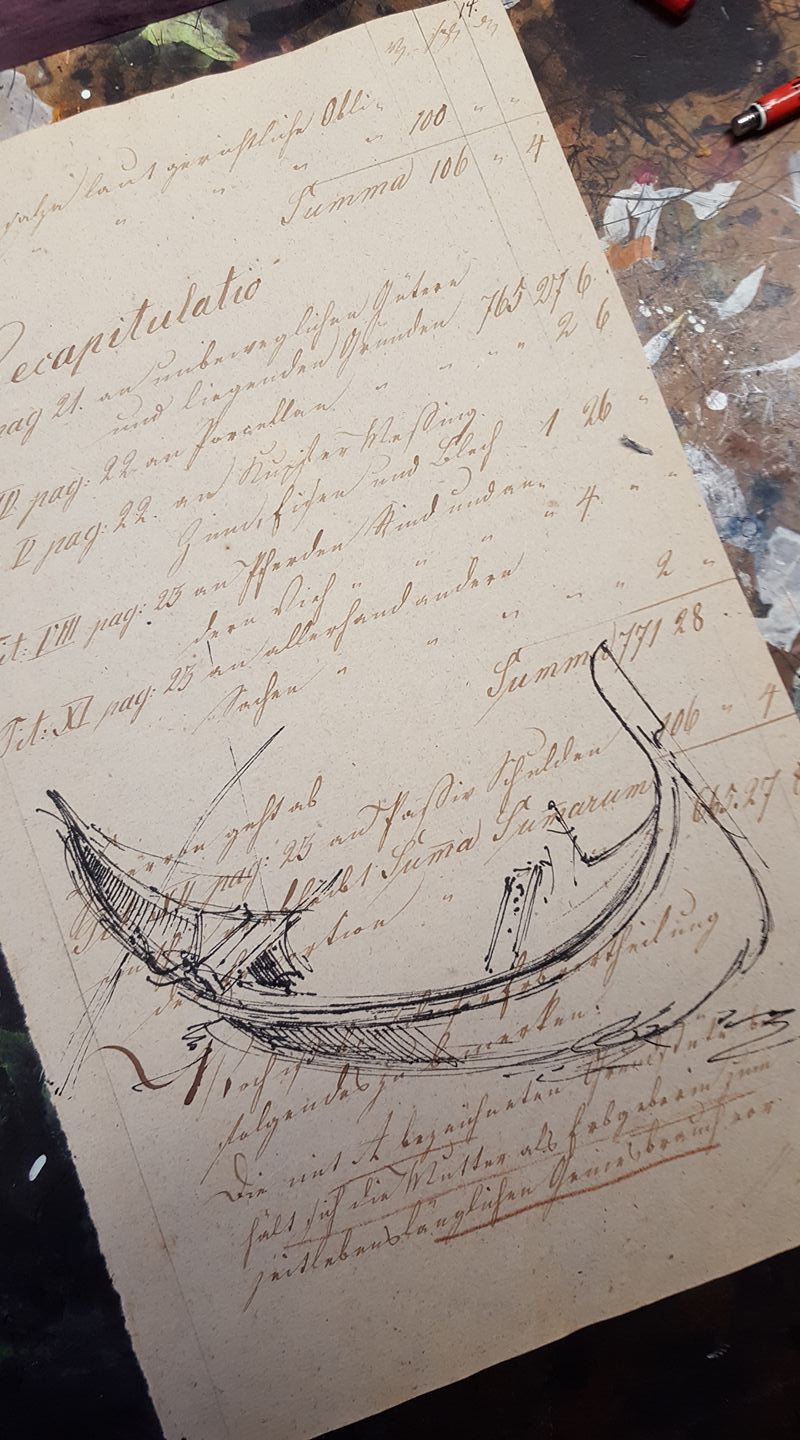 14.
laut gerichtliche Obli-
" " " " 100 " "
Summa 106 " 4
Recapitulatio
pag 21. an unbeweglichen Gütern
und liegenden Gründen 765 27 6.
IV pag: 22 an Porcellan " " " " 2 6
V pag: 22. an Kupfer Messing
Zinn, Eisen und Blech 1 26 "
Tit: VIII pag: 23 an Pferden Rind und an-
dern Vieh " " " " 4 " "
Tit: XI pag: 23 an allerhand andern
Sachen " " " " " 2 "
Summa 771 28
geht ab
pag: 23 an Passiv Schulden 106 " 4
bleibt Suma Sumarum 665.27
"
Erbvertheilung
folgendes zu bemerken:
Die mit A bezeichneten Grundstüke
hält sich die Mutter als Erbgeberin zum
zeitlebenslänglichen vor